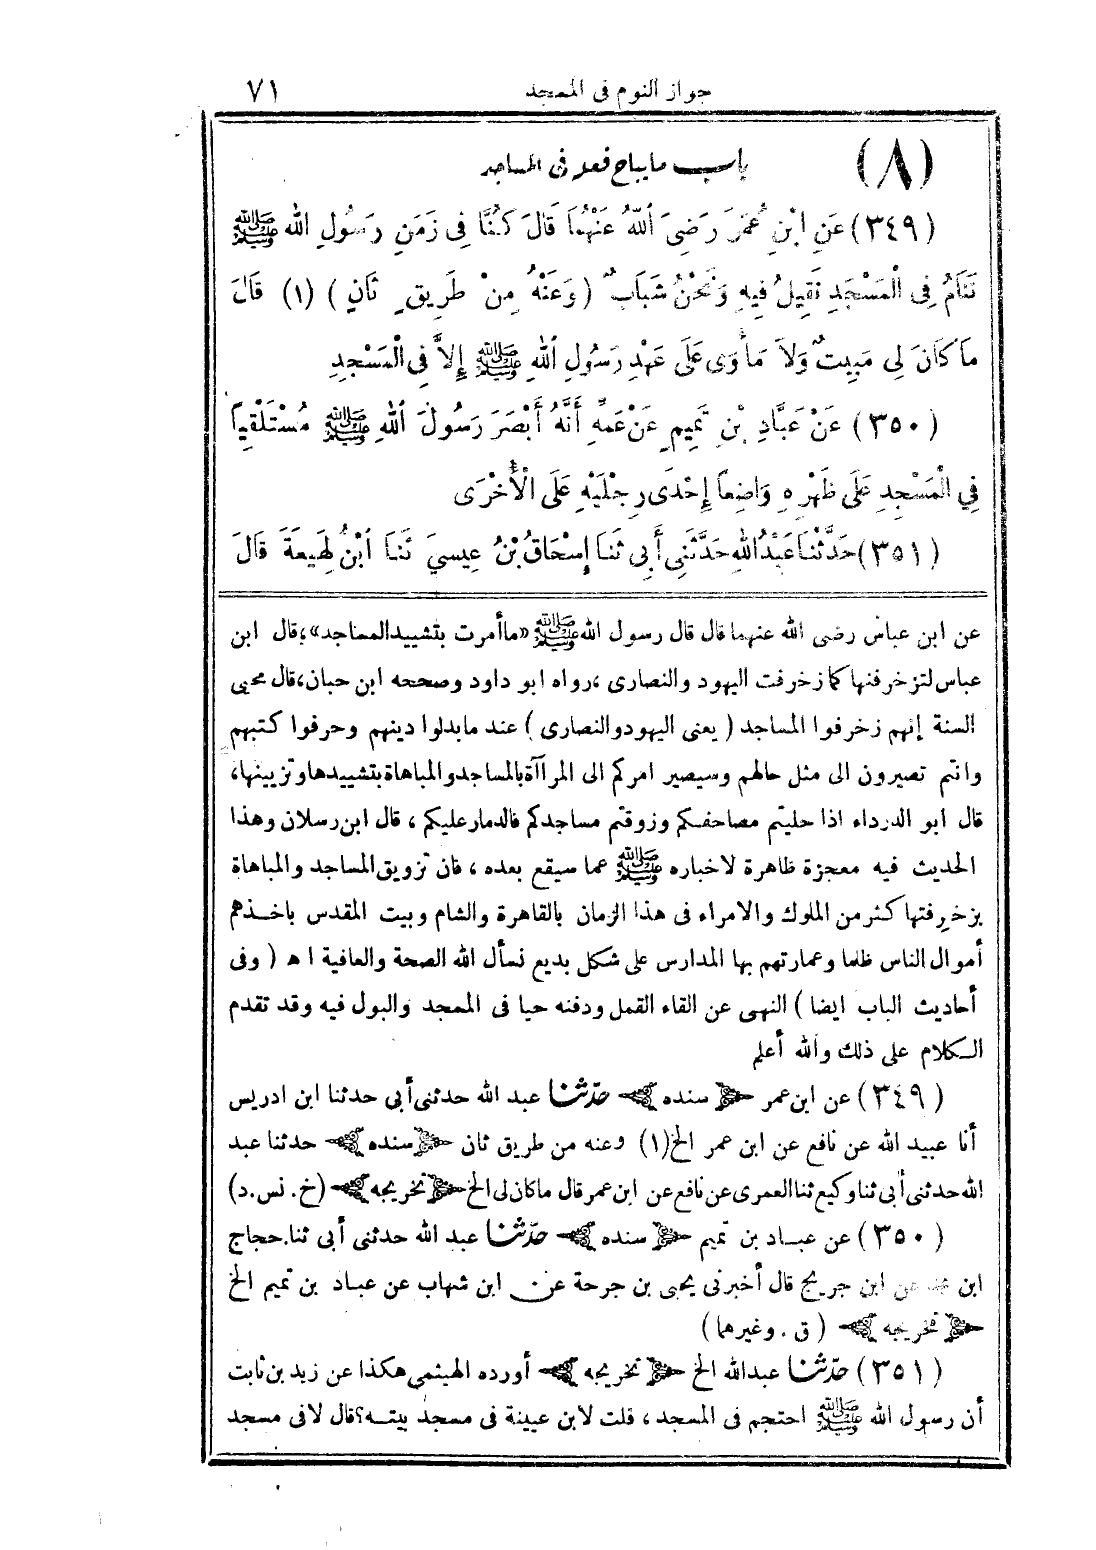 جواز النوم فى المسجد ٧١
(٨) باب ما يباح فعله فى المساجد
(٣٤٩) عَنِ ابْنِ عُمَرَ رَضِىَ اللهُ عَنْهُمَا قَالَ كُنَّا فِى زَمَنِ رَسُولِ اللهِ ﷺ
نَنَامُ فِى الْمَسْجِدِ نَقِيلُ فِيهِ وَنَحْنُ شَبَابٌ (وَعَنْهُ مِنْ طَرِيقٍ ثَانٍ) (١) قَالَ
مَا كَانَ لِى مَبِيتٌ وَلَا مَأْوَى عَلَى عَهْدِ رَسُولِ اللهِ ﷺ إِلاَّ فِى الْمَسْجِدِ
(٣٥٠) عَنْ عَبَّادِ بْنِ تَمِيمٍ عَنْ عَمِّهِ أَنَّهُ أَبْصَرَ رَسُولَ اللهِ ﷺ مُسْتَلْقِياً
فِي الْمَسْجِدِ عَلَى ظَهْرِهِ وَاضِعاً إِحْدَى رِجْلَيْهِ عَلَى الْأُخْرَى
(٣٥١) حَدَّثَنَا عَبْدُ اللهِ حَدَّثَنِى أَبِى ثَنَا إِسْحَاقُ بْنُ عِيسَىَ ثَنَا ابْنُ لَهِيعَةَ قَالَ
عن ابن عباس رضى الله عنهما قال قال رسول الله ﷺ «ما أمرت بتشييد المساجد»، قال ابن
عباس لتزخرفنها كما زخرفت اليهود والنصارى، رواه ابو داود وصححه ابن حبان، قال محيى
السنة إنهم زخرفوا المساجد (يعنى اليهود والنصارى) عند ما بدلوا دينهم وحرفوا كتبهم
وانتم تصيرون الى مثل حالهم وسيصير امركم الى المراآة بالمساجد والمباهاة بتشييدها وتزيينها،
قال ابو الدرداء اذا حليتم مصاحفكم وزوقتم مساجدكم فالدمار عليكم، قال ابن رسلان وهذا
الحديث فيه معجزة ظاهرة لاخباره ﷺ عما سيقع بعده، فان تزويق المساجد والمباهاة
بزخرفتها كثر من الملوك والامراء فى هذا الزمان بالقاهرة والشام وبيت المقدس باخذهم
أموال الناس ظلما وعمارتهم بها المدارس على شكل بديع نسأل الله الصحة والعافية اهـ (وفى
أحاديث الباب ايضا) النهى عن القاء القمل ودفنه حيا فى المسجد والبول فيه وقد تقدم
الكلام على ذلك والله أعلم
(٣٤٩) عن ابن عمر ﴿سنده﴾ حدّثنا عبد الله حدثنى أبى حدثنا ابن ادريس
أنا عبيد الله عن نافع عن ابن عمر الخ (١) وعنه من طريق ثان ﴿سنده﴾ حدثنا عبد
الله حدثنى أبى ثنا وكيع ثنا العمرى عن نافع عن ابن عمر قال ما كان لى الخ ﴿تخريجه﴾ (خ. نس. د)
(٣٥٠) عن عباد بن تميم ﴿سنده﴾ حدّثنا عبد الله حدثنى أبى ثنا حجاج
ابن عن ابن جريج قال أخبرنى يحيى بن جرحة عن ابن شهاب عن عباد بن تميم الخ
﴿تخريجه﴾ (ق. وغيرهما)
(٣٥١) حدّثنا عبد الله الخ ﴿تخريجه﴾ أورده الهيثمى هكذا عن زيد بن ثابت
أن رسول الله ﷺ احتجم فى المسجد، قلت لابن عيينة فى مسجد بيته؟ قال لا فى مسجد